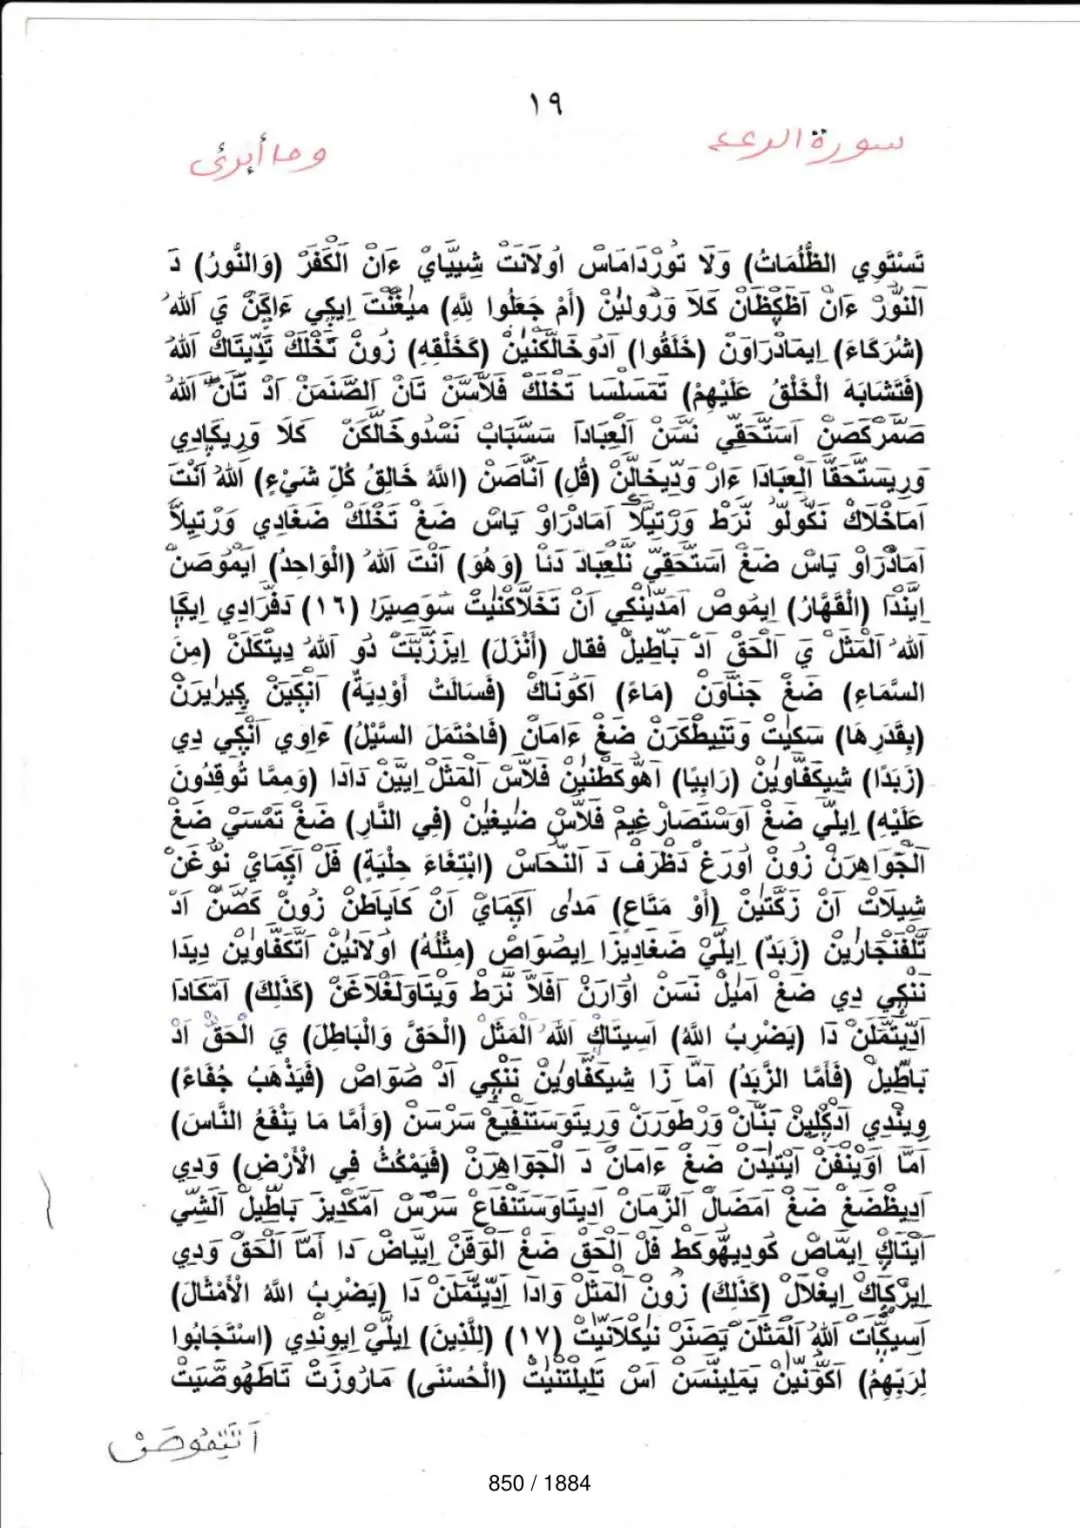 ١٩
سورة الرعد
وما أبرئ
تَسْتَوِي الظُّلُمَاتُ) وَلَا تُورْدَامَاسْ اُولَانَتْ شِيبَّايْ ءَانْ اَلْكَفَرْ (وَالنُّورُ) دَ
اَلنُّورْ ءَانْ اَظَكِظَانْ كَلَا وَرُولِيْنْ (أَمْ جَعَلُوا لِلَّهِ) مِيغْنْتَ اِيكِي ءَاكِنْ يَ اَللهُ
(شُرَكَاءَ) اِيمَادْرَاوَنْ (خَلَقُوا) اَدُوخَالَكْنِيْنْ (كَخَلْقِهِ) زُونْ تَخْلَكْ تَدِّيتَاكْ اَللهُ
(فَتَشَابَهَ الْخَلْقُ عَلَيْهِمْ) تَمَسْلَسَا تَخْلَكْ فَلَاسَّنْ تَانْ اَلصَّنَمَنْ اَدْ تَانْ اَللهُ
صَمَّرْكَصَنْ اَسْتَحَقِّي نَسَّنْ اَلْعِبَادَا سَسَّبَابْ نَسَّدُوخَالَكَنْ كَلَا وَرِيكَادِي
وَرِيسْتَحَقَّا اَلْعِبَادَا ءَارْ وَدِّيخَالَنْ (قُلِ) اَنَّاصَنْ (اللَّهُ خَالِقُ كُلِّ شَيْءٍ) اَللهُ اَنْتَ
اَمَاخْلَاكْ نَكُولُّو نَرَّطْ وَرْتِيلَّا اَمَادْرَاوْ يَاسْ ضَغْ تَخْلَكْ ضَغَادِي وَرْتِيلَّا
اَمَادْرَاوْ يَاسْ ضَغْ اَسْتَحَقِّي نَلْعِبَادَ دَنَا (وَهُوَ) اَنْتَ اَللهُ (الْوَاحِدُ) اَيْمُوصَنْ
اِيَّنْدَا (الْقَهَّارُ) اِيمُوصْ اَمَدِّينَكِي اَنْ تَخَلَّاكْنِيتْ سَوَصِيرَا (١٦) دَفَّرَادِي اِيكَا
اَللهُ اَلْمَثَلْ يَ اَلْحَقْ اَدْ بَاطِيلْ فقال (أَنْزَلَ) اِيزَزَّبَّتْ دُو اَللهُ دِيتَكَلَنْ (مِنَ
السَّمَاءِ) ضَغْ جَنَّاوَنْ (مَاءً) اَكُونَاكْ (فَسَالَتْ أَوْدِيَةٌ) اَنْكِيَنْ كِيرَايَرَنْ
(بِقَدَرِهَا) سَكِيتْ وَتَنِيطْكَرَنْ ضَغْ ءَامَانْ (فَاحْتَمَلَ السَّيْلُ) ءَاوِي اَنْكِي دِي
(زَبَدًا) شِيكَفَّاوِينْ (رَابِيًا) اَهُّوكَطْنِينْ فَلَاسْ اَلْمَثَلْ اِيِّينْ دَادَا (وَمِمَّا تُوقِدُونَ
عَلَيْهِ) اِيلِّي ضَغْ اَوَسْتَصَارْغِيمْ فَلَّاسْ ضِيغِيْنْ (فِي النَّارِ) ضَغْ تَمْسَيْ ضَغْ
اَلْجَوَاهِرَنْ زُونْ اُورَغْ دَظْرَفْ دَ اَلنُّحَاسْ (ابْتِغَاءَ حِلْيَةٍ) فَلْ اَكِمَايْ نَوُّغَنْ
شِيلَاتْ اَنْ زَكْتِيْنْ (أَوْ مَتَاعٍ) مَدَى اَكِمَايْ اَنْ كَايَاطَنْ زُونْ كَصَّنْ اَدْ
تَلْفَنْجَارِينْ (زَبَدٌ) اِيلِّيْ ضَغَادِيزَا اِيصُوَاصْ (مِثْلُهُ) اُولَانِيْنْ اَتَكَفَّاوِينْ دِيدَا
نَنْكِي دِي ضَغْ اَمِيلْ نَسَنْ اَوَّارَنْ اَفَلَّا نَرَّطْ وَيتَاوَلَغْلَاغَنْ (كَذَلِكَ) اَمَّكَادَا
اَدِّيتَّمْلَنْ دَا (يَضْرِبُ اللَّهُ) اَسِيتَاكْ اَللهُ اَلْمَثَلْ (الْحَقَّ وَالْبَاطِلَ) يَ الْحَقْ اَدْ
بَاطِيلْ (فَأَمَّا الزَّبَدُ) اَمَّا زَا شِيكَفَّاوِينْ نَنْكِي اَدْ صُوَاصْ (فَيَذْهَبُ جُفَاءً)
وِينْدِي اَدْكْلِيْنْ بَنَّانْ وَرْطُورَنْ وَرِيتَوَسْتَنْفِيعْ سَرْسَنْ (وَأَمَّا مَا يَنْفَعُ النَّاسَ)
اَمَّا اَوَيْنَفَنْ اَيْتِيدَنْ ضَغْ ءَامَانْ دَ اَلْجَوَاهِرَنْ (فَيَمْكُثُ فِي الْأَرْضِ) وَدِي
اَدِيظْضَغْ ضَغْ اَمَضَالْ اَلزَّمَانْ اَدِيتَاوَسْتَنْفَاعْ سَرْسْ اَمَّكْدِيزْ بَاطِيلْ اَلشِّي
اَيْتَاكْ اِيمَّاصْ كُودِيهُوكَطْ فَلْ اَلْحَقْ ضَغْ اَلْوَقَنْ اِيبَّاضْ دَا اَمَّا اَلْحَقْ وَدِي
اِيزْكَاكْ اِيغْلَالْ (كَذَلِكَ) زُونْ اَلْمَثَلْ وَادَا اَدِّيتَّمْلَنْ دَا (يَضْرِبُ اللَّهُ الْأَمْثَالَ)
اَسِيكَّاتْ اَللهُ اَلْمَثَلَنْ يَصَنَرْ نَيْكَلَانِيتْ (١٧) (لِلَّذِينَ) اِيلِّيْ اِيوِنْدِي (اسْتَجَابُوا
لِرَبِّهِمُ) اَكَوَّنِينْ يَمَلِينَّسَنْ اَسْ تَلِيلْتَنِيتْ (الْحُسْنَى) مَارُوزَتْ تَاطَهُوصِّيَتْ
اَتَّيَمُوصَنْ
850 / 1884